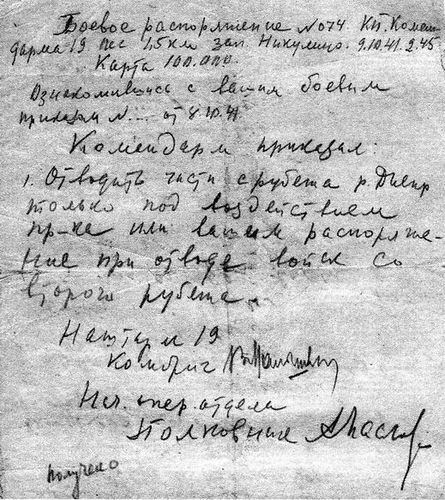 Боевое распоряжение №074 КП. Комен-
дарма 19 лес 1,5 км зап. Никулино. 9.10.41. 2.45
Карта 100.000.
Ознакомившись с вашим боевым
приказом №... от 8.10.41
Командарм приказал:
1. Отводить части с рубежа р. Днепр
только под воздействием
пр-ка или вашем распоряже-
ние при отводе войск со
второго рубежа.
Наштарм 19
Комбриг
Нач. опер. отдела
Полковник
получено